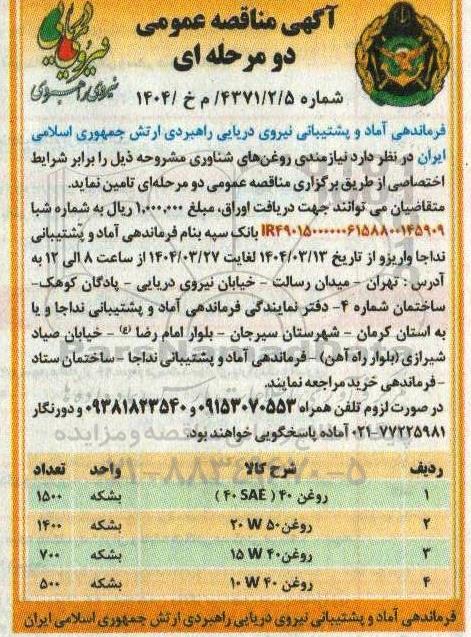 آگهی مناقصه عمومی
دو مرحله ای
شماره ۴۳۷۱/۲/۵/ م خ /۱۴۰۴
فرماندهی آماد و پشتیبانی نیروی دریایی راهبردی ارتش جمهوری اسلامی
ایران در نظر دارد نیازمندی روغن‌های شناوری مشروحه ذیل را برابر شرایط
اختصاصی از طریق برگزاری مناقصه عمومی دو مرحله‌ای تامین نماید.
متقاضیان می توانند جهت دریافت اوراق، مبلغ ۱,۰۰۰,۰۰۰ ریال به شماره شبا
بانک سپه بنام فرماندهی آماد و پشتیبانی
نداجا واریزو از تاریخ ۱۴۰۴/۰۳/۱۳ لغایت ۱۴۰۴/۰۳/۲۷ از ساعت ۸ الی ۱۲ به
آدرس : تهران - میدان رسالت - خیابان نیروی دریایی - پادگان کوهک-
ساختمان شماره ۴- دفتر نمایندگی فرماندهی آماد و پشتیبانی نداجا و یا
به استان کرمان - شهرستان سیرجان - بلوار امام رضا (ع) - خیابان صیاد
شیرازی (بلوار راه آهن) - فرماندهی آماد و پشتیبانی نداجا - ساختمان ستاد
- فرماندهی خرید مراجعه نمایند.
در صورت لزوم تلفن همراه ۰۹۱۵۳۰۷۰۵۵۳ و ۰۹۳۸۱۸۲۳۵۴۰ و دورنگار
۰۲۱-۷۷۲۲۵۹۸۱ آماده پاسخگویی خواهند بود.
ردیف شرح کالا واحد تعداد
۱ روغن ۴۰ ( ۴۰ SAE ) بشکه ۱۵۰۰
۲ روغن ۵۰ W ۲۰ بشکه ۱۴۰۰
۳ روغن ۴۰ W ۱۵ بشکه ۷۰۰
۴ روغن ۴۰ W ۱۰ بشکه ۵۰۰
فرماندهی آماد و پشتیبانی نیروی دریایی راهبردی ارتش جمهوری اسلامی ایران